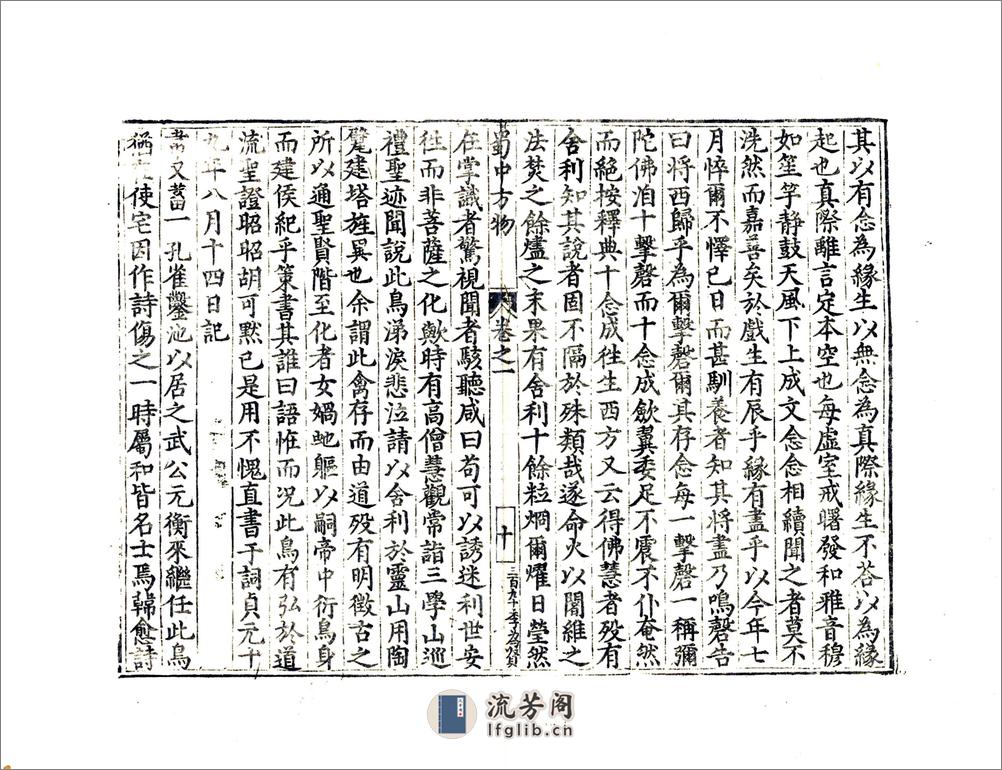 其以有念為緣生以無念為真際緣生不荅以為緣
起也真際離言定本空也每虛室戒曙發和雅音穆
如笙竽靜鼓天風下上成文念念相續聞之者莫不
洗然而嘉善矣於戲生有辰乎緣有盡乎以今年七
月悴爾不懌已日而甚馴養者知其將盡乃鳴磬告
曰將西歸乎為爾擊磬爾其存念每一擊磬一稱彌
陀佛洎十擊磬而十念成歛翼委足不震不仆奄然
而絕按釋典十念成徃生西方又云得佛慧者歿有
舍利知其說者固不隔於殊類哉遂命火以闍維之
法焚之餘燼之末果有舍利十餘粒烱爾燿日瑩然
蜀中方物 卷之一 十
在掌識者驚視聞者駭聽咸曰苟可以誘迷利世安
往而非菩薩之化歟時有高僧慧觀常詣三學山巡
禮聖迹聞說此鳥涕淚悲泣請以舍利於靈山用陶
甓建塔旌異也余謂此禽存而由道歿有明徵古之
所以通聖賢階至化者女媧虵軀以嗣帝中衍鳥身
而建侯紀乎策書其誰曰語恠而况此鳥有弘於道
流聖證昭昭胡可默已是用不愧直書于詞貞元十
九年八月十四日記
又蓄一孔雀鑿池以居之武公元衡來繼任此鳥
猶在使宅因作詩傷之一時屬和皆名士焉韓愈詩
流芳阁
lfglib.cn